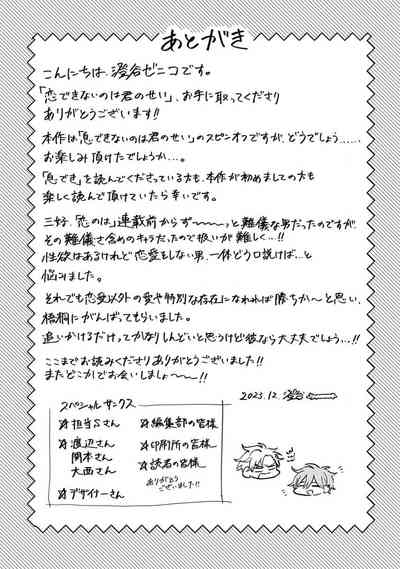 あとがき
こんにちは、澄谷ゼニコです。
「恋できないのは君のせい」、お手に取ってくださり
ありがとうございます!!
本作は「恋できないのは君のせい」のスピンオフですが、どうでしょう……
お楽しみ頂けたでしょうか…。
「恋でき」を読んでくださっている方も、本作が初めましての方も
楽しく読んで頂けていたら幸いです。
三好、「恋のは」連載前からず〜〜〜っと難儀な男だったのですが
その難儀さ含めのキャラだったので扱いが難しく…!!
性欲はあるけれど恋愛をしない男、一体どう口説けば…と
悩みました。
それでも恋愛以外の愛や特別な存在になれれば勝ちか〜と思い、
梧桐にがんばってもらいました。
追いかけるだけってかなりしんどいと思うけど彼なら大丈夫でしょう…!!
ここまでお読みくださりありがとうございました!!
またどこかでお会いしましょ〜〜!!
2023.12. 澄谷
スペシャルサンクス
☆担当Sさん
☆渡辺さん
関本さん
大西さん
☆デザイナーさん
☆編集部の皆様
☆印刷所の皆様
☆読者の皆様
ありがとう
ございました!!